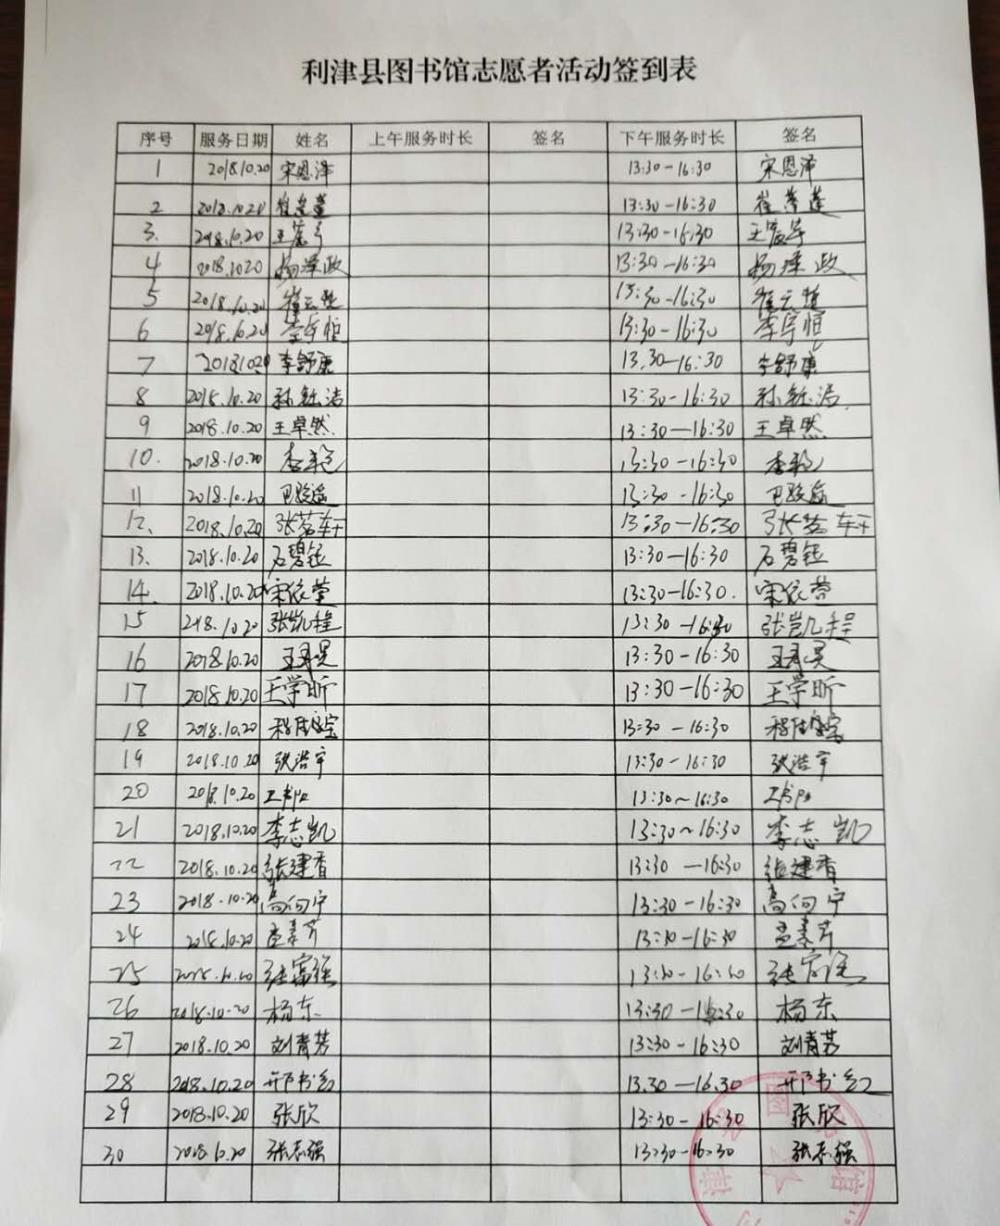 利津县图书馆志愿者活动签到表
序号 服务日期 姓名 上午服务时长 签名 下午服务时长 签名
1 2018.10.20 宋恩泽 13:30-16:30 宋恩泽
2 2018.10.20 13:30-16:30
3. 2018.10.20 13:30-16:30
4 2018.10.20 杨泽政 13:30-16:30 杨泽政
5 2018.10.20 13:30-16:30
6 2018.10.20 李宇恒 13:30-16:30 李宇恒
7 2018.10.20 李舒康 13.30-16:30 李舒康
8 2018.10.20 13:30-16:30
9 2018.10.20 王卓然 13:30-16:30 王卓然
10. 2018.10.20 13:30-16:30
11 2018.10.20 13:30-16:30
12. 2018.10.20 张茗轩 13:30-16:30 张茗轩
13. 2018.10.20 石碧钰 13:30-16:30 石碧钰
14. 2018.10.20 宋依萱 13:30-16:30. 宋依萱
15 2018.10.20 张凯程 13:30-16:30 张凯程
16 2018.10.20 13:30-16:30
17 2018.10.20 王学昕 13:30-16:30 王学昕
18 2018.10.20 13:30-16:30
19 2018.10.20 张浩宇 13:30-16:30 张浩宇
20 2018.10.20 13:30~16:30
21 2018.10.20 李志凯 13:30~16:30 李志凯
22 2018.10.20 张建香 13:30-16:30 张建香
23 2018.10.20 高向宁 13:30-16:30 高向宁
24 2018.10.20 孟素芹 13:30-16:30 孟素芹
25 2018.10.20 张富强 13:30-16:30 张富强
26 2018.10.20 杨东 13:30-16:30 杨东
27 2018.10.20 刘青芳 13:30-16:30 刘青芳
28 2018.10.20 邢书红 13.30-16.30 邢书红
29 2018.10.20 张欣 13:30-16:30 张欣
30 2018.10.20 张志强 13:30-16:30 张志强